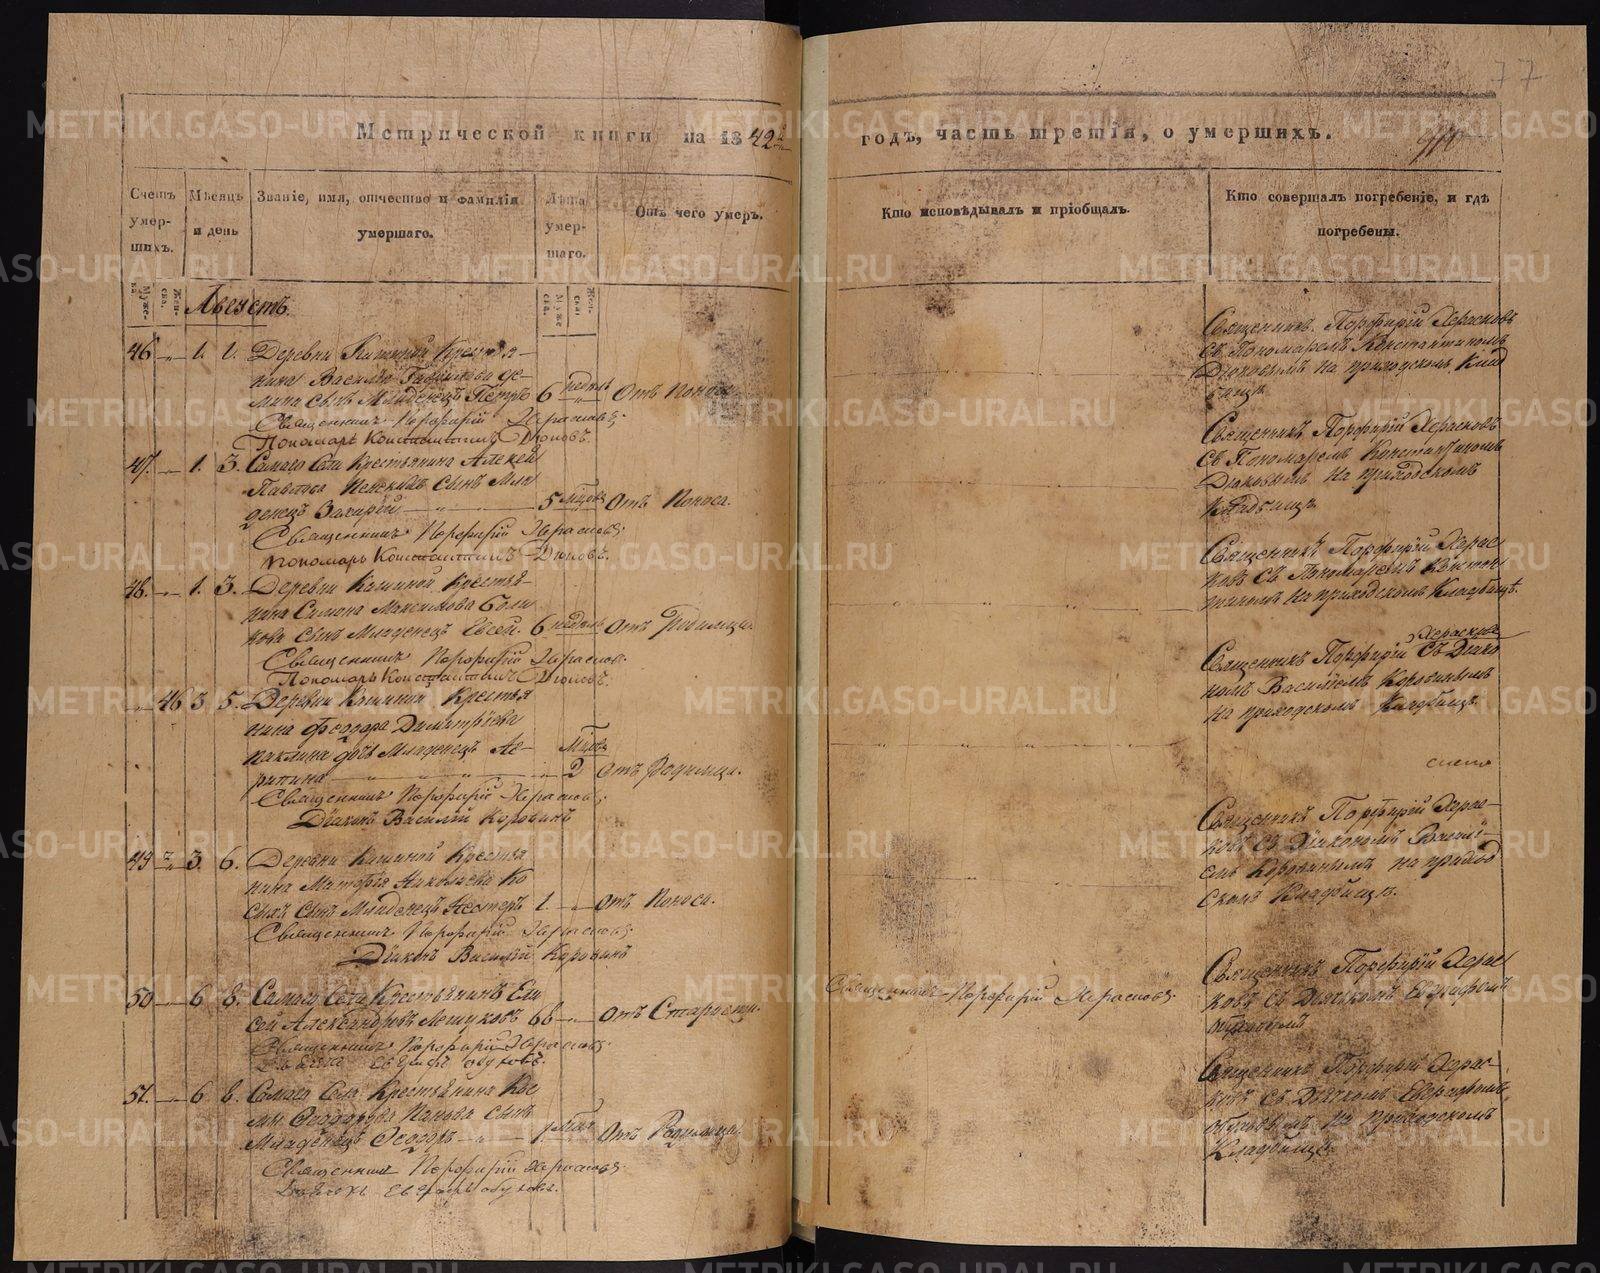 77
Метрической книги на 1842й
годъ, часть третія, о умершихъ.
Счетъ умерших.
Мѣсяцъ и день
Званіе, имя, отчество и фамилія умершаго.
Лѣта умершаго.
Отъ чего умеръ.
Кто исповѣдывалъ и пріобщалъ.
Кто совершалъ погребеніе, и гдѣ погребены.
Августъ.
46 1. 1. Деревни Крестья-
нина Василья
мина сынъ Младенецъ Петръ 6 недѣль Отъ Поноса
Священникъ Порфирій Херасковъ
Пономарь Константинъ Дюковъ.
Священникъ Порфирій Херасковъ
съ Пономаремъ Константиномъ
Дюковымъ на приходскомъ Клад
бищѣ.
47. 1. 3. Самаго Села Крестьянина Алексѣя
Павлова сынъ Мла
денецъ Захарій 5 мѣсяц Отъ Поноса.
Священникъ Порфирій Херасковъ.
Пономарь Константинъ Дюковъ.
Священникъ Порфирій Херасковъ
съ Пономаремъ Константиномъ
Дюковымъ на приходскомъ
Кладбищѣ.
48. 1. 3. Деревни Кашиной Крестья-
нина Симеона Максимова
сынъ Младенецъ Евсей. 6 недѣль Отъ Родимца.
Священникъ Порфирій Херасковъ.
Пономарь Константинъ Дюковъ.
Священникъ Порфирій Херас
ковъ съ Пономаремъ Констан
тиномъ на приходскомъ Кладбищѣ.
46 3 5. Деревни Кашиной Крестья
нина Феодора Димитріева
дочь Младенецъ Аг-
рипина Мѣсяц 2 Отъ Родимца.
Священникъ Порфирій Херасковъ
Діаконъ Василій Коровинъ
Священникъ Порфирій Херасковъ съ Діако
номъ Василіемъ Коровинымъ
на приходскомъ Кладбищѣ.
49 3. 6. Деревни Кашиной Крестья
нина Николаева Ко
сыхъ сынъ Младенецъ Несторъ 1. Отъ Поноса.
Священникъ Порфирій Херасковъ
Діаконъ Василій Коровинъ
Священникъ Порфирій Херас-
ковъ съ Діакономъ Василі-
емъ Коровинымъ на приход
скомъ Кладбищѣ.
50 6 8. Самаго Села Крестьянинъ Ели
сей Александровъ 66 Отъ Старости.
Священникъ Порфирій Херасковъ
Священникъ Порфирій Херасковъ.
Священникъ Порфирій Херас
ковъ съ Дьячкомъ Евграфомъ
51. 6 8. Самаго Села Крестьянина
Феодорова Панова сынъ
Младенецъ 1 Отъ Родимца.
Священникъ Порфирій Херасковъ
Священникъ Порфирій Херас-
ковъ съ Дьячкомъ Евграфомъ
Обуховымъ на Приходскомъ
Кладбищѣ.
METRIKI.GASO-URAL.RU